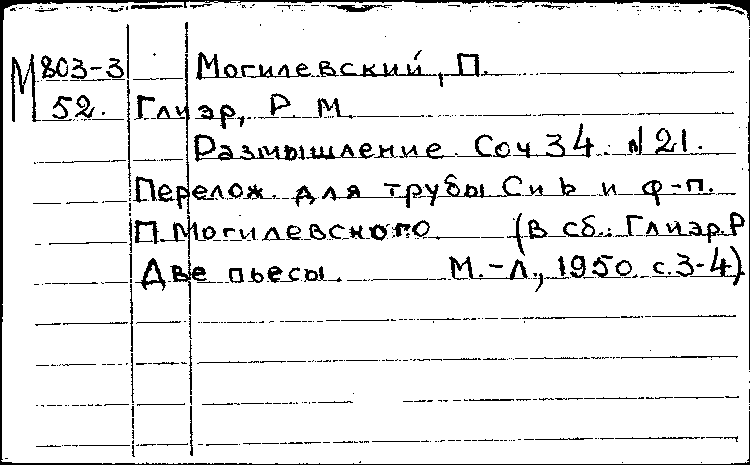 М 803-3 Могилевский, П.
52. Глиэр, Р. М.
Размышление. Соч 34. N 21.
Перелож. для трубы Си b и ф-п.
П. Могилевского. (В сб.: Глиэр. Р
Две пьесы. М.-Л., 1950. с. 3-4)